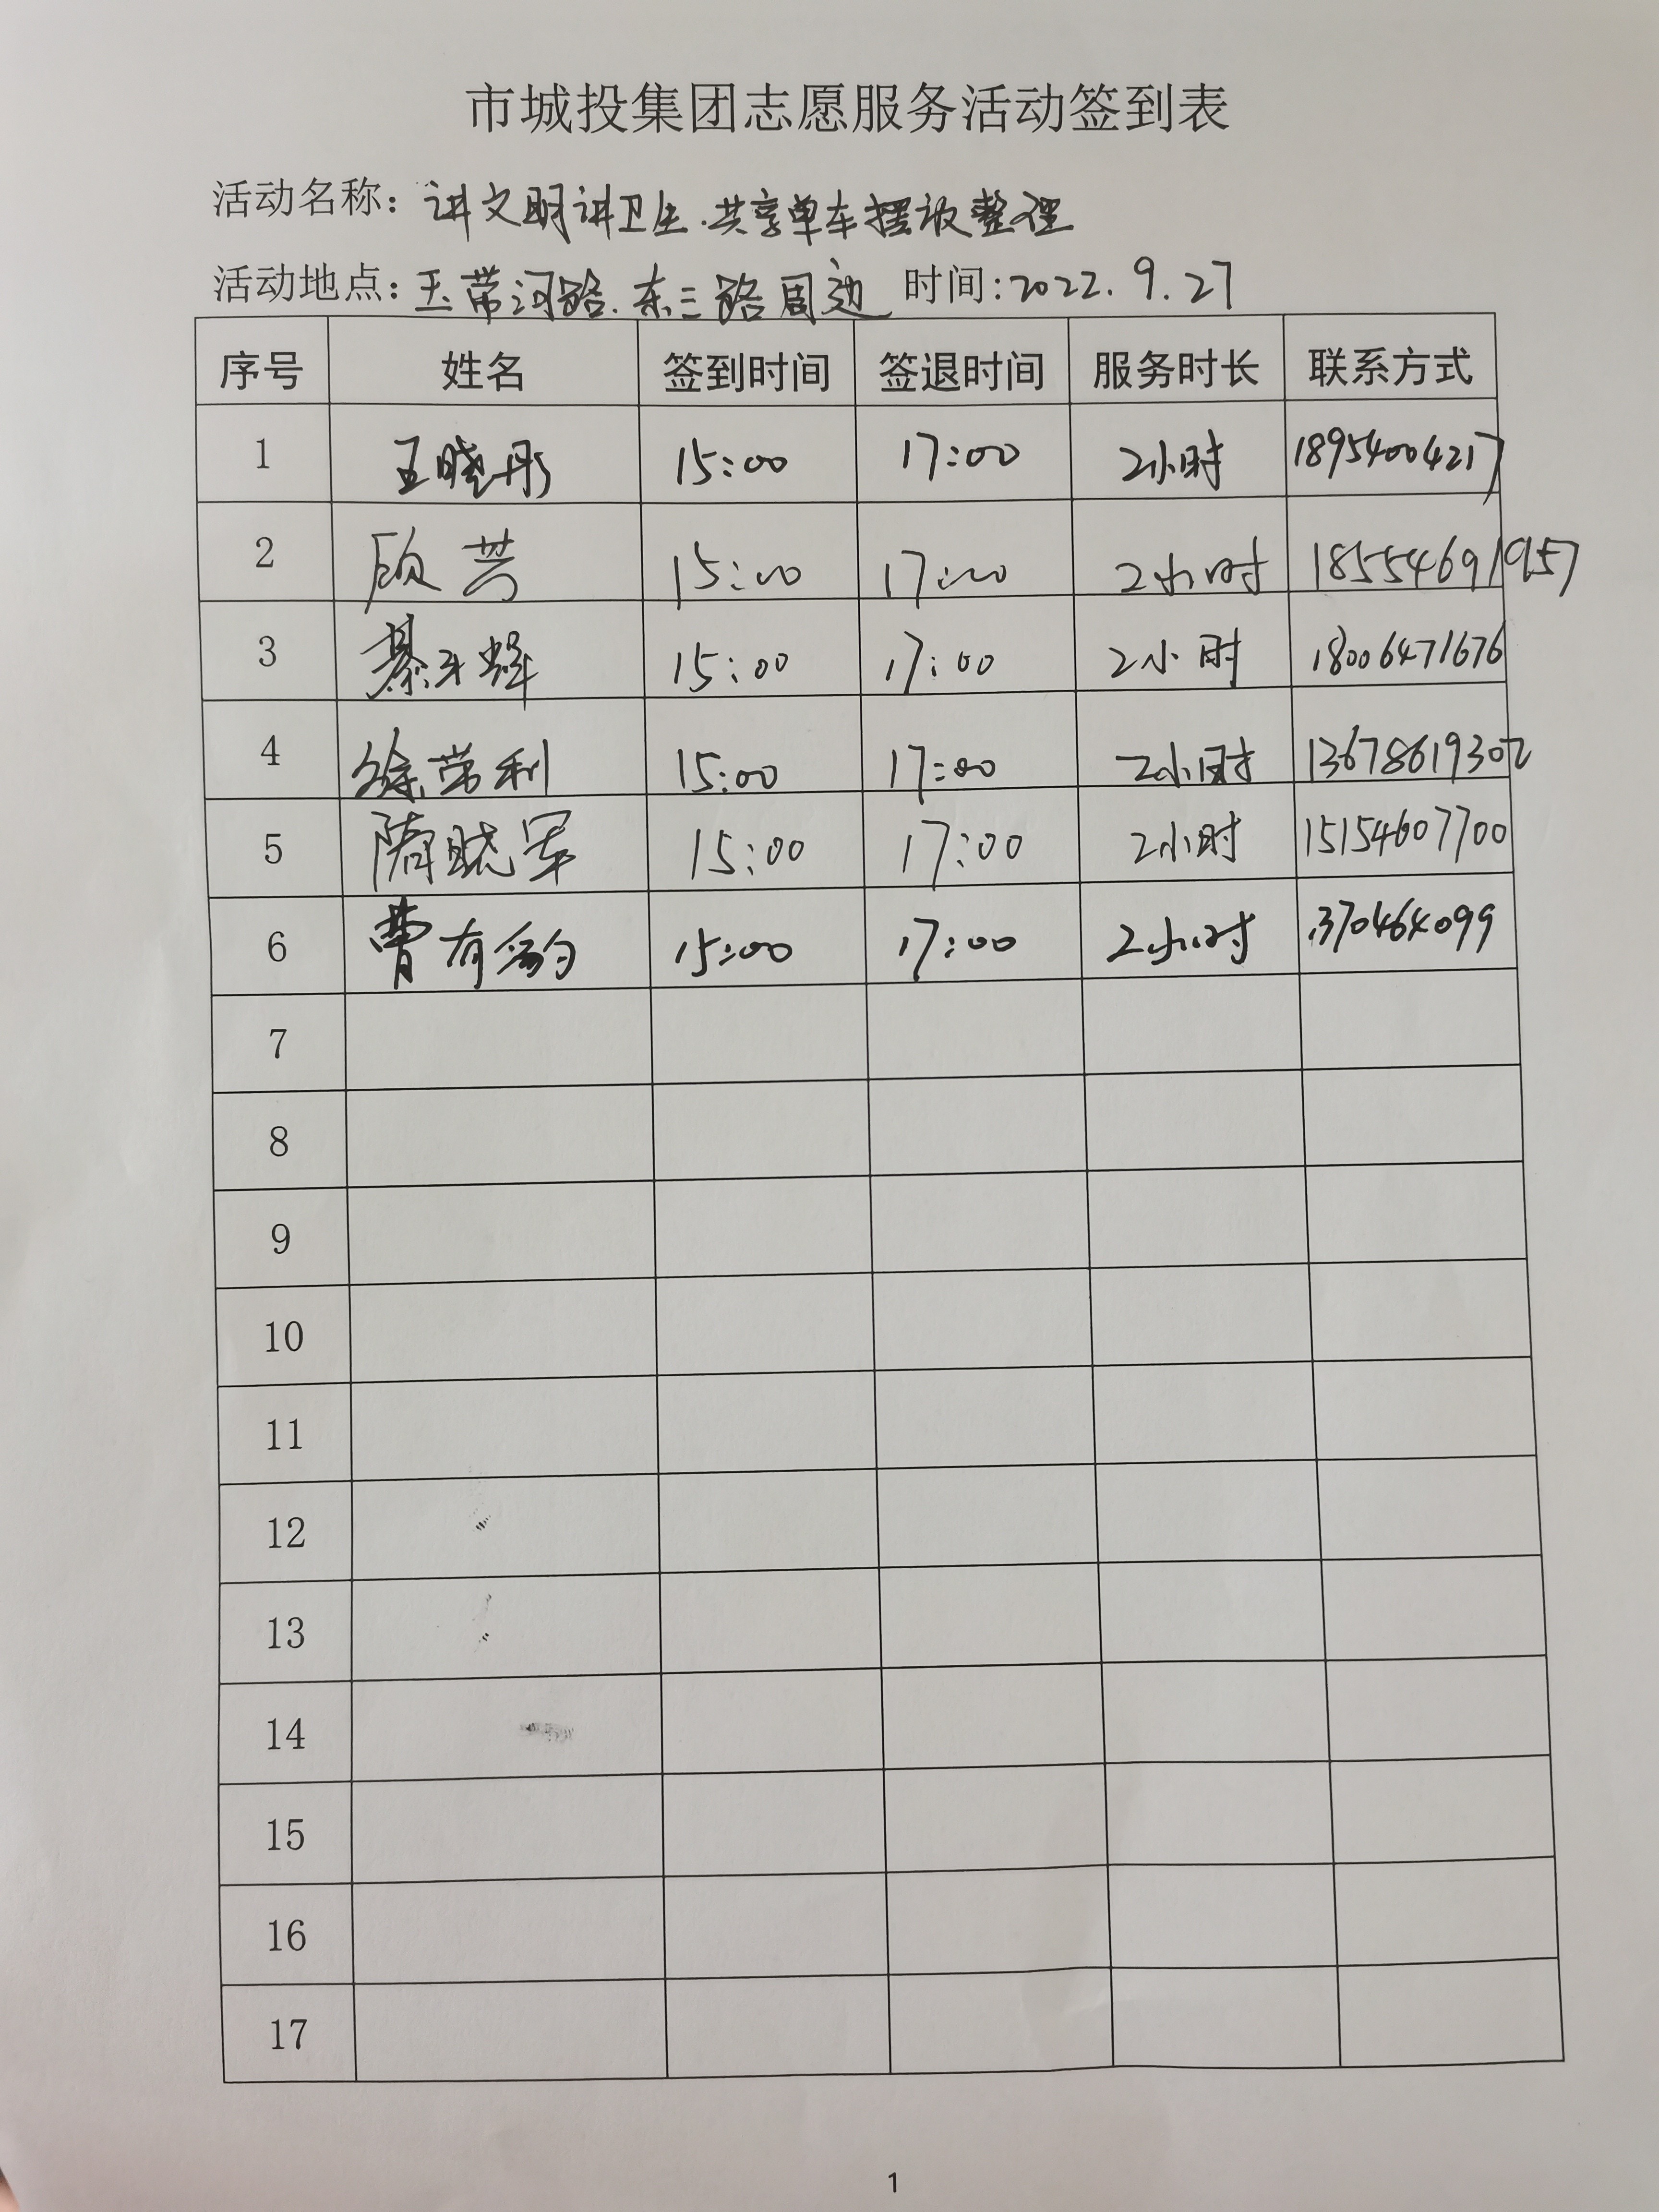 市城投集团志愿服务活动签到表
活动名称：讲文明讲卫生.共享单车摆放整理
活动地点：玉带河路.东三路周边 时间:2022.9.27
序号 姓名 签到时间 签退时间 服务时长 联系方式
1 王晓彤 15:00 17:00 2小时 18954004217
2 顾芸 15:00 17:00 2小时 18554691957
3 綦玉辉 15:00 17:00 2小时 18006471676
4 徐荣利 15:00 17:00 2小时 13678619302
5 隋晓军 15:00 17:00 2小时 15154607700
6 曹有 15:00 17:00 2小时
7
8
9
10
11
12
13
14
15
16
17
1